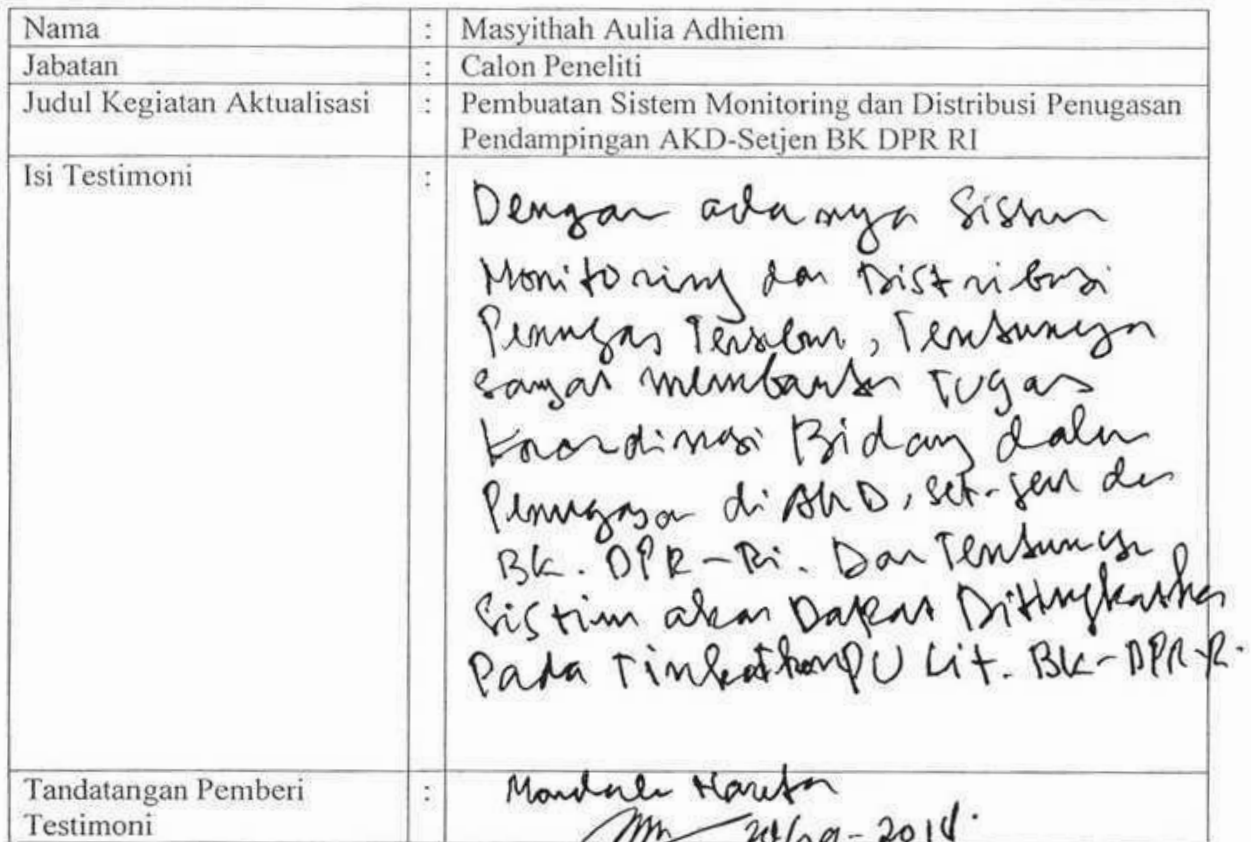 Nama : Masyithah Aulia Adhiem
Jabatan : Calon Peneliti
Judul Kegiatan Aktualisasi : Pembuatan Sistem Monitoring dan Distribusi Penugasan
Pendampingan AKD-Setjen BK DPR RI
Isi Testimoni :
Dengan adanya Sistem
Monitoring dan Distribusi
Penugas Tersebut, Tentunya
sangat membantu Tugas
Koordinasi Bidang dalam
Penugasan di AKD, set-jen dan
BK. DPR-Ri. Dan Tentunya
Sistim akan Dapat Ditingkatkan
Pada Tingkat PU Lit. BK-DPR-R.
Tandatangan Pemberi :
Testimoni
2014